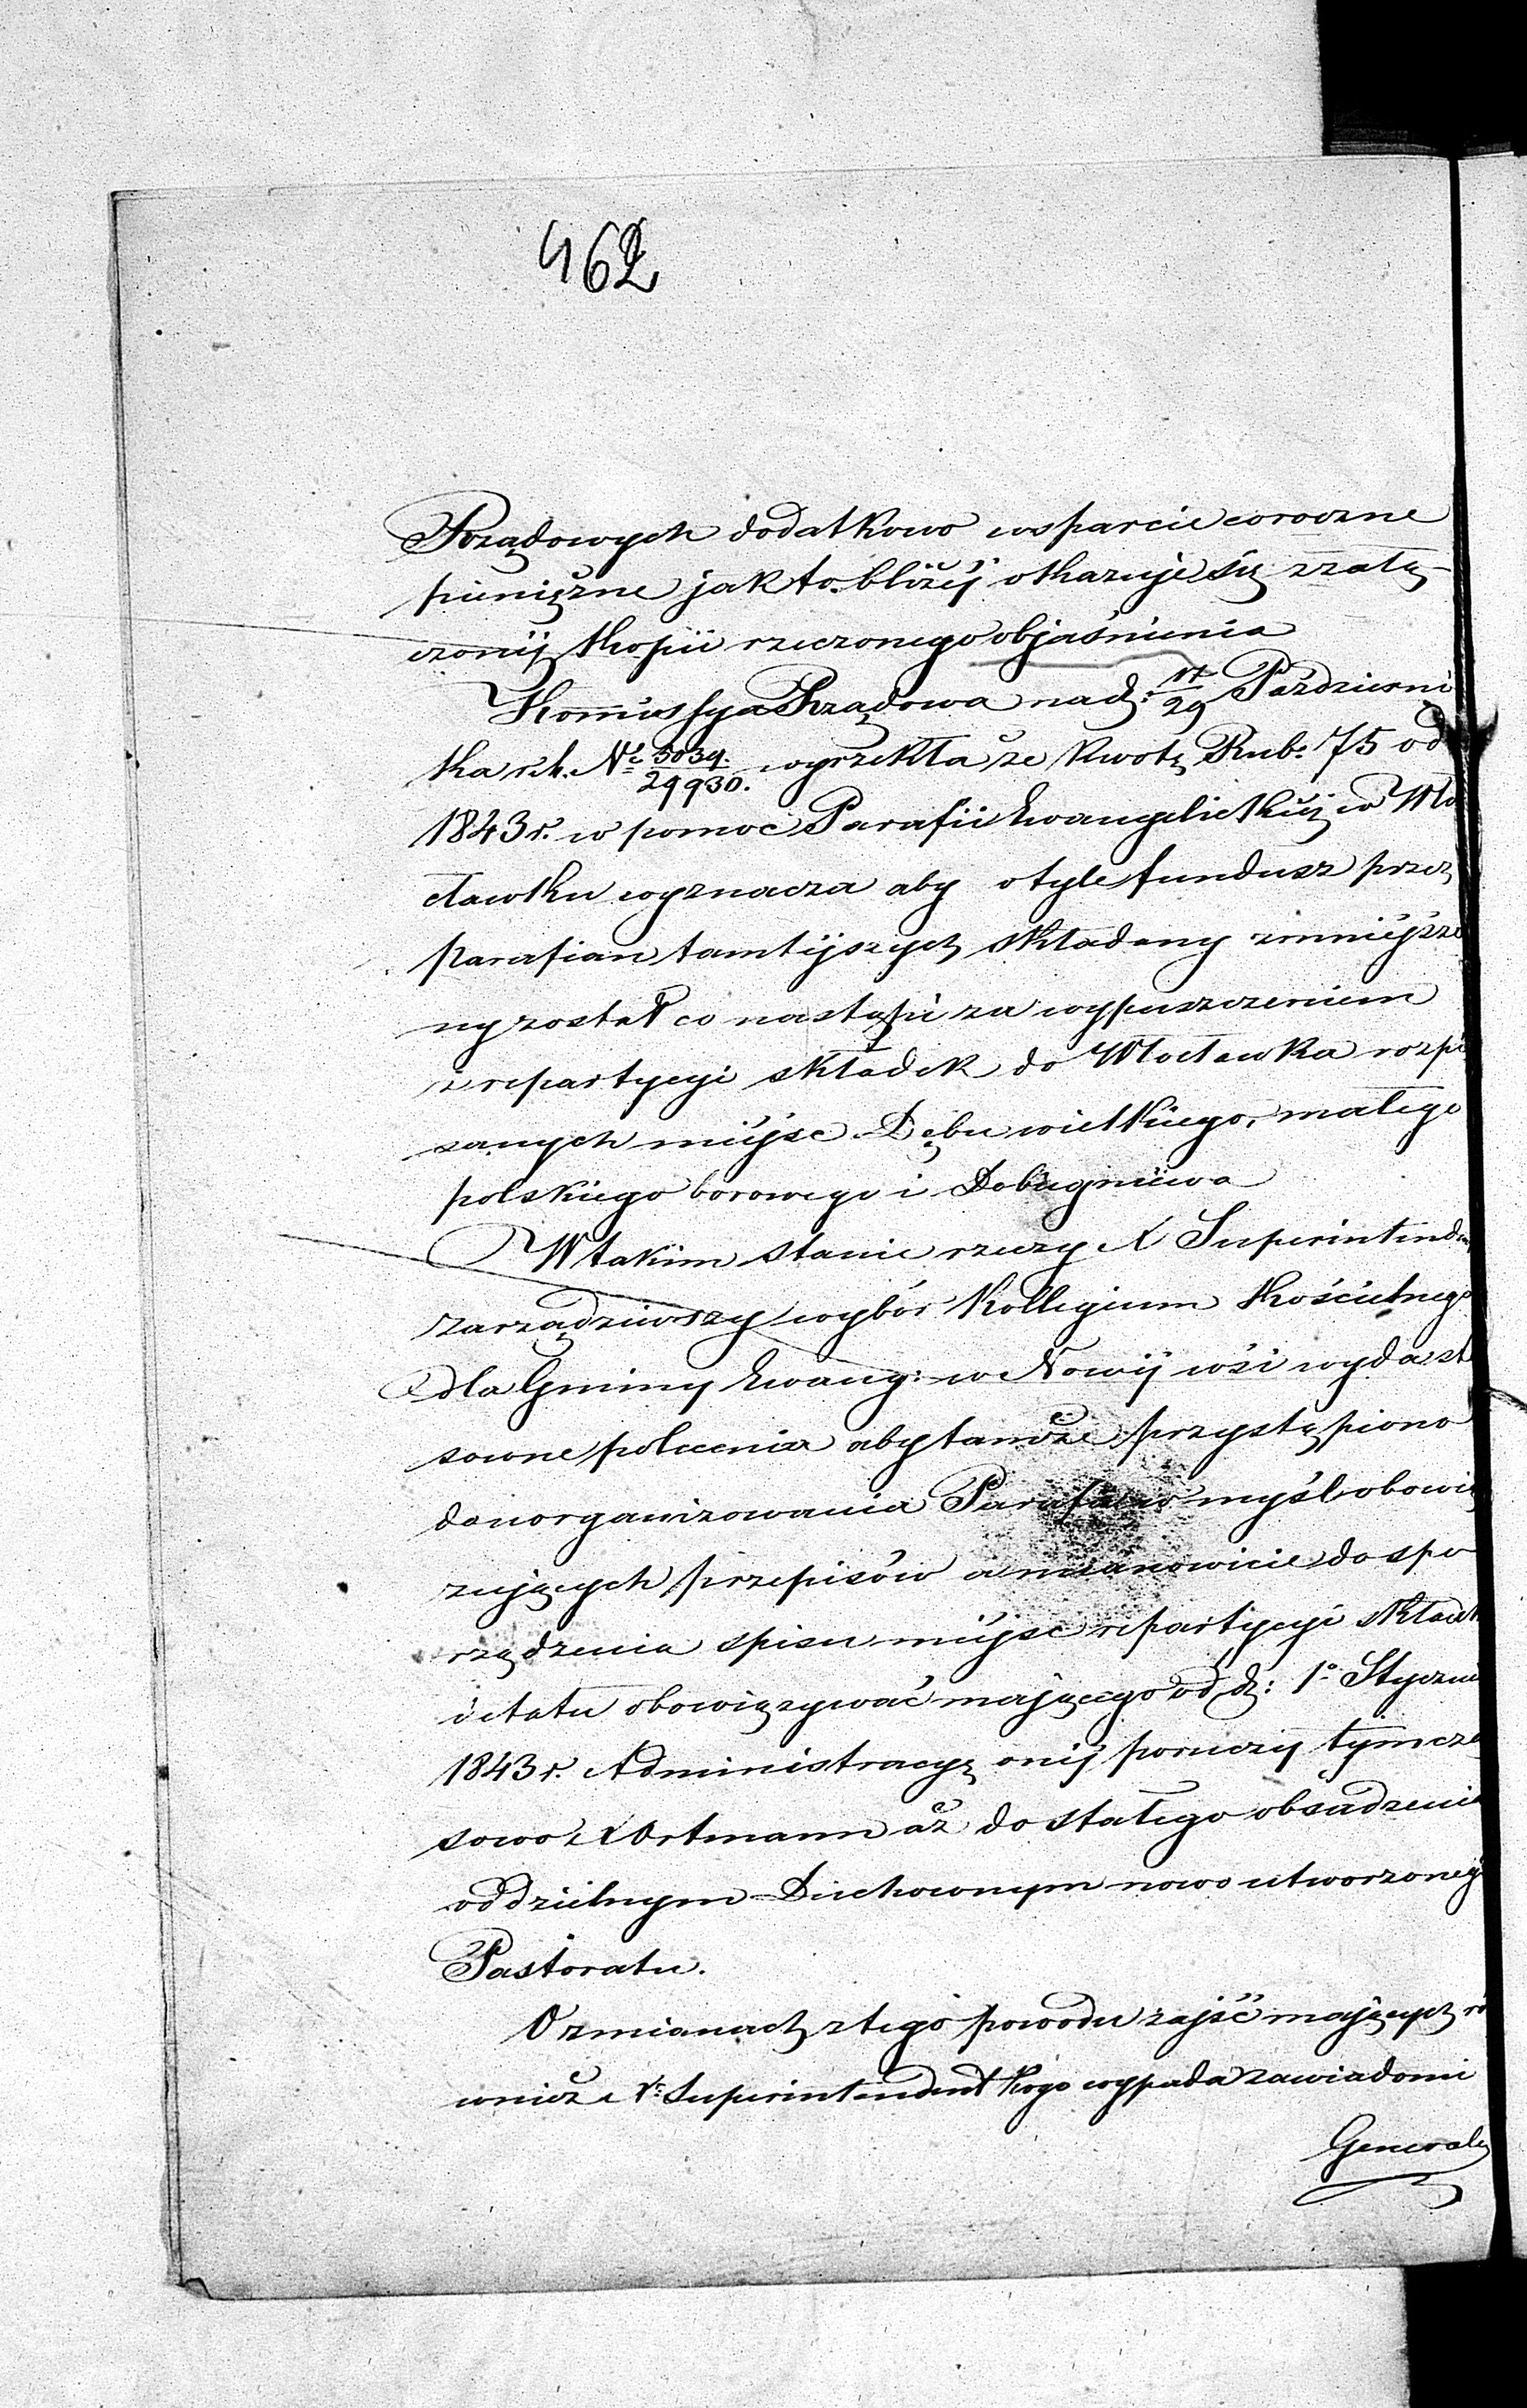 462
Rządowych dodatkowo wsparcie coroczne
pieniężne jak to bliżej okazuje się z załą-
czonej kopii rzeczonego objaśnienia
Kommissya Rządowa na d: 17/29 Październi
ka r.b. Nº 3039./29930. wyrzekła że kwotę Rub. 75 od
1843 r. w pomoc Parafii Ewangelickiej w Wło
cławku wyznacza aby o tyle fundusz przez
parafian tamtejszych składany zmniejszo
ny został co nastąpi za wypuszczeniem
z repartycyi składek do Włocławka rozpi
sanych miejsc Dębu wielkiego, małego
polskiego borowego i Dobiegniewa
W takim stanie rzeczy X Superintend
zarządziwszy wybór Kollegium Kościelnego
dla Gminy Ewang: w Nowej wsi wyda sto
sowne polecenia aby tamże przystąpiono
do uorganizowania Parafii w myśl obowią
zujących przepisów a mianowicie do spo
rządzenia spisu miejsc repartycyi składk
i etatu obowiązywać mającego od d: 1º Styczni
1843 r. Administracyą onej poruczy tymcza
sowo X Ortmann aż do stałego obsadzenia
oddzielnym Duchownym nowo utworzonego
Pastoratu.
O zmianach z tego powodu zajść mających ró
wnież X. Superintendent kogo wypada zawiadomi
Generaln